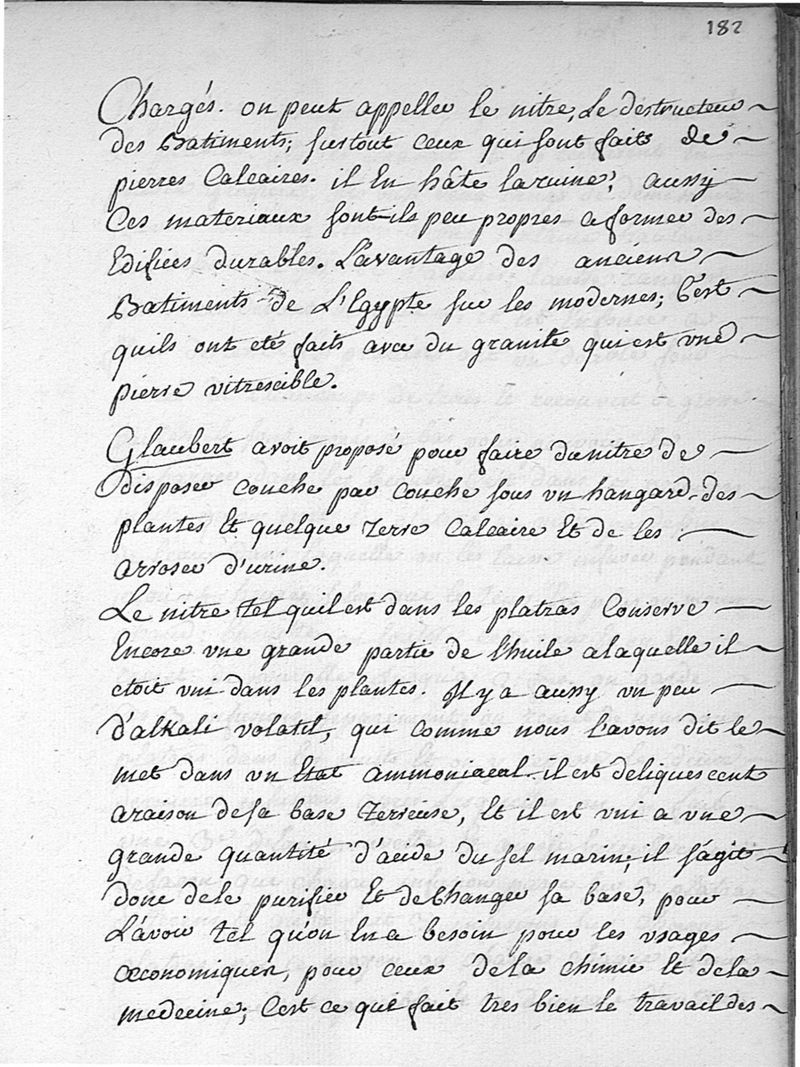 182
Chargés. on peut appeller le nitre, le destructeur
des Batiments; surtout ceux qui sont faits de
pierres Calcaires. il En hâte la ruine; aussy
Ces materiaux sont-ils peu propres a former des
Edifices durables. L'avantage des anciens
Batiments de L'Egypte sur les modernes; C'est
quils ont eté faits avec du granite qui est vne
pierre vitrescible.
Glaubert avoit proposé pour faire du nitre de
disposer couche par couche sous vn hangard, des
plantes Et quelque terre Calcaire Et de les
arroser d'urine.
Le nitre tel quil est dans les platras Conserve
Encore vne grande partie de l'huile a laquelle il
etoit vni dans les plantes. Il y a aussy vn peu
d'alkali volatil, qui comme nous l'avons dit le
met dans vn Etat ammoniacal. il est deliquescent
a raison de sa base terreuse, Et il est vni a vne
grande quantité d'acide du sel marin; il s'agit
donc de le purifier Et de Changer sa base, pour
L'avoir tel qu'on En a besoin pour les vsages
œconomiques, pour ceux de la chimie Et de la
medecine; C'est ce que fait tres bien le travail des